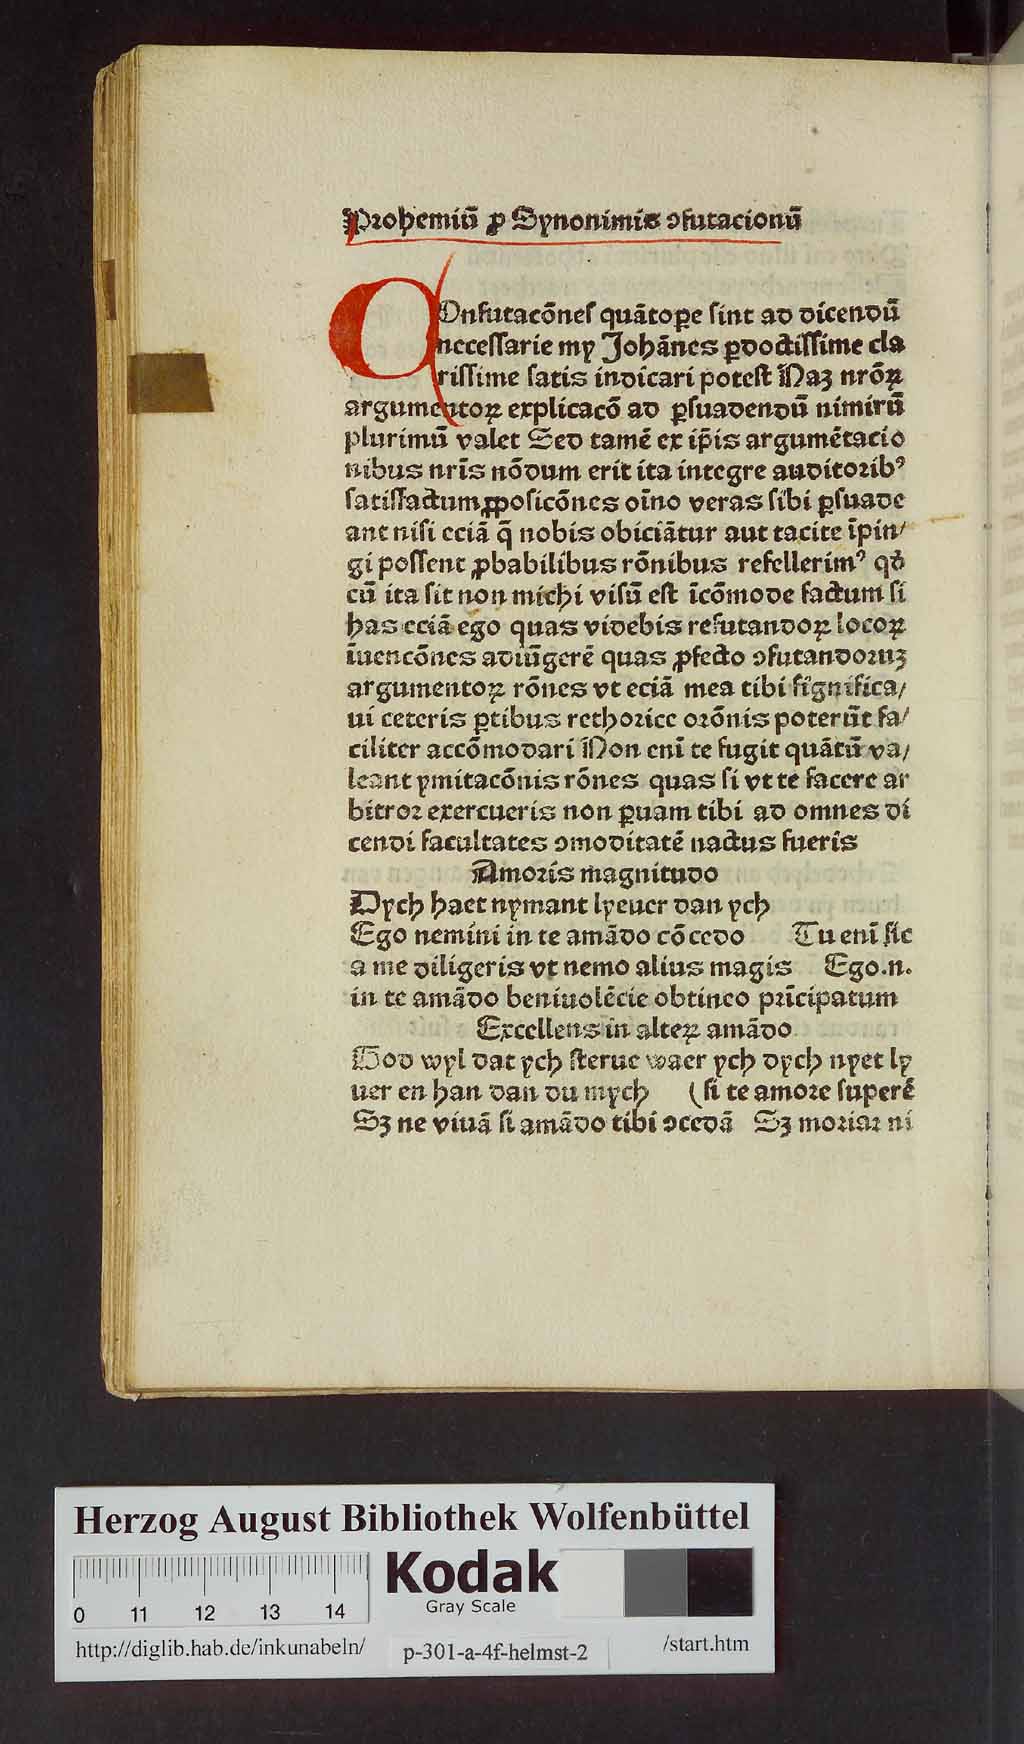 Prohemiū ꝓ Synonimis ↄfutacionū
COnfutacōnes quātoꝑe sint ad dicendū
necessarie my Johānes ꝑdoctissime cla
rissime satis indicari potest Naʒ nrōꝝ
argumentoꝝ explicacō ad ꝑsuadendū nimirū
plurimū valet Sed tamē ex ip̄is argumētacio
nibus nr̄is nōdum erit ita integre auditorib⁹
satisfactum ꝓposicōnes oīno veras sibi ꝑsuade
ant nisi eciā q̄ nobis obiciātur aut tacite īpin/
gi possent ꝓbabilibus rōnibus refellerim⁹ qđ
cū ita sit non michi visū est īcōmode factum si
has eciā ego quas videbis refutandoꝝ locoꝝ
īuencōnes adiūgerē quas ꝓfecto ↄfutandoruʒ
argumentoꝝ rōnes vt eciā mea tibi significa/
ui ceteris ꝑtibus rethorice orōnis poterūt fa/
ciliter accōmodari Non enī te fugit quātū va/
leant ymitacōnis rōnes quas si vt te facere ar
bitror exercueris non ꝑuam tibi ad omnes di
cendi facultates ↄmoditatē nactus fueris
Amoris magnitudo
Dych haet nymant lyeuer dan ych
Ego nemini in te amādo cōcedo Tu enī sic
a me diligeris vt nemo alius magis Ego.n.
in te amādo beniuolēcie obtineo prīcipatum
Excellens in alteꝝ amādo
God wyl dat ych sterue waer ych dych nyet ly
uer en han dan du mych (si te amore superē
Sʒ ne viuā si amādo tibi ↄcedā Sʒ moriar ni
Herzog August Bibliothek Wolfenbüttel
Kodak
Gray Scale
0 11 12 13 14
http://diglib.hab.de/inkunabeln/ p-301-a-4f-helmst-2 /start.htm